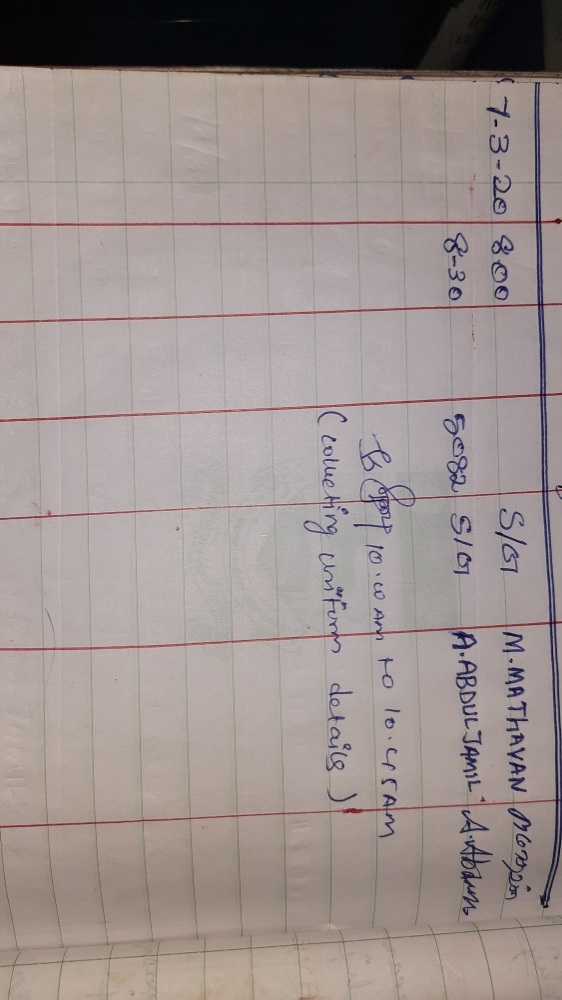 7-3-20 800 S/G M. MATHAVAN
8-30 5082 S/G A. ABDUL JAMIL
10.00 AM to 10.45 AM
(collecting uniform details)